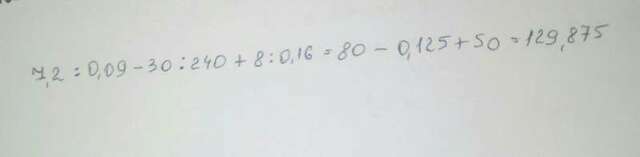 7,2 : 0,09 - 30 : 240 + 8 : 0,16 = 80 - 0,125 + 50 = 129,875